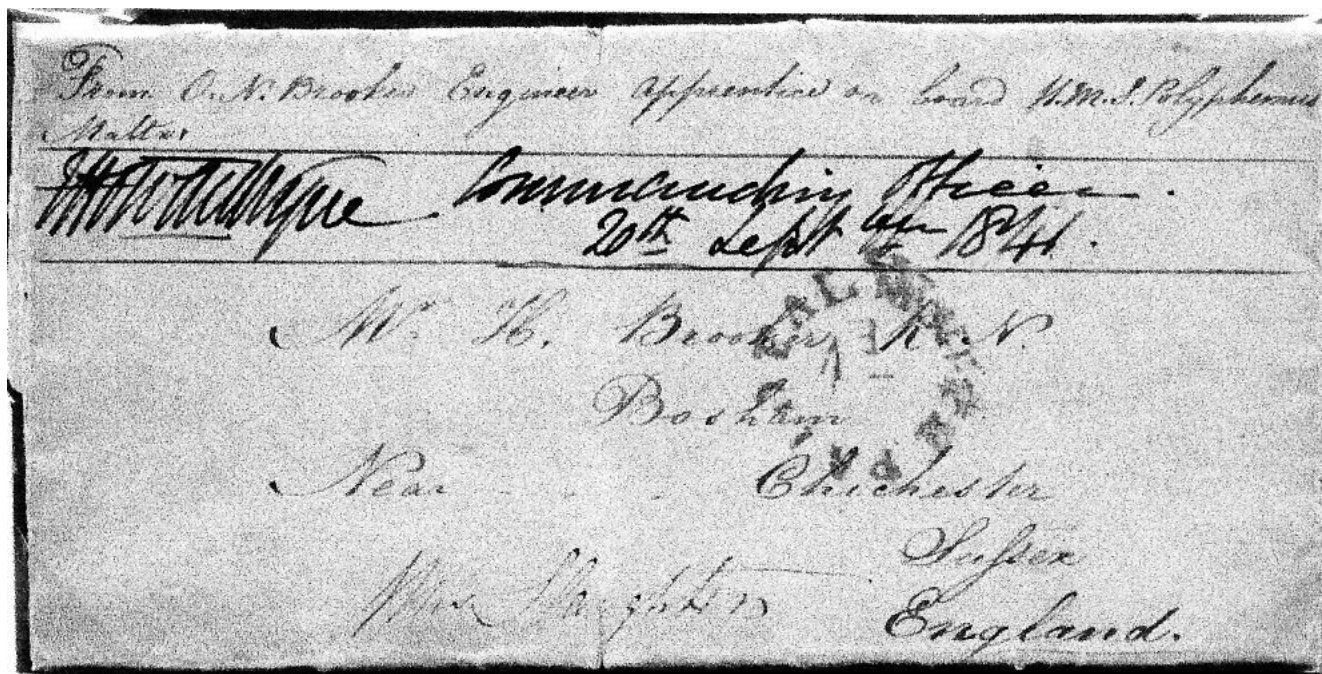 From O. N. Brooker Engineer apprentice on board H.M.S. Polyphemus
Malta
Commanding Officer.
20th Sept 1841.
Mr. H. Brooker R. N.
Bosham
Near Chichester
Sussex
England.
MALTA